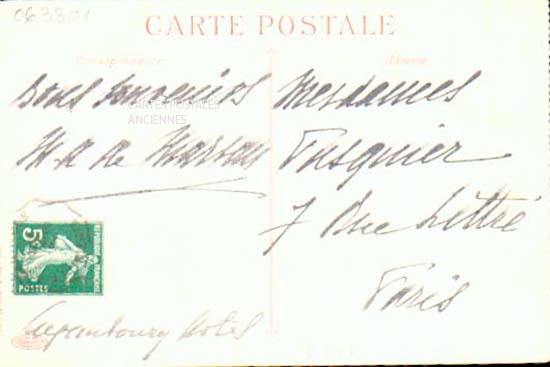 063301
CARTE POSTALE
Correspondance
Adresse
Bons Souvenirs
CARTES POSTALES
ANCIENNES
M. A de
Mesdames
Pasquier
7 Rue Littré
Paris
5c
REPUBLIQUE FRANÇAISE
POSTES
Luxembourg Hotel